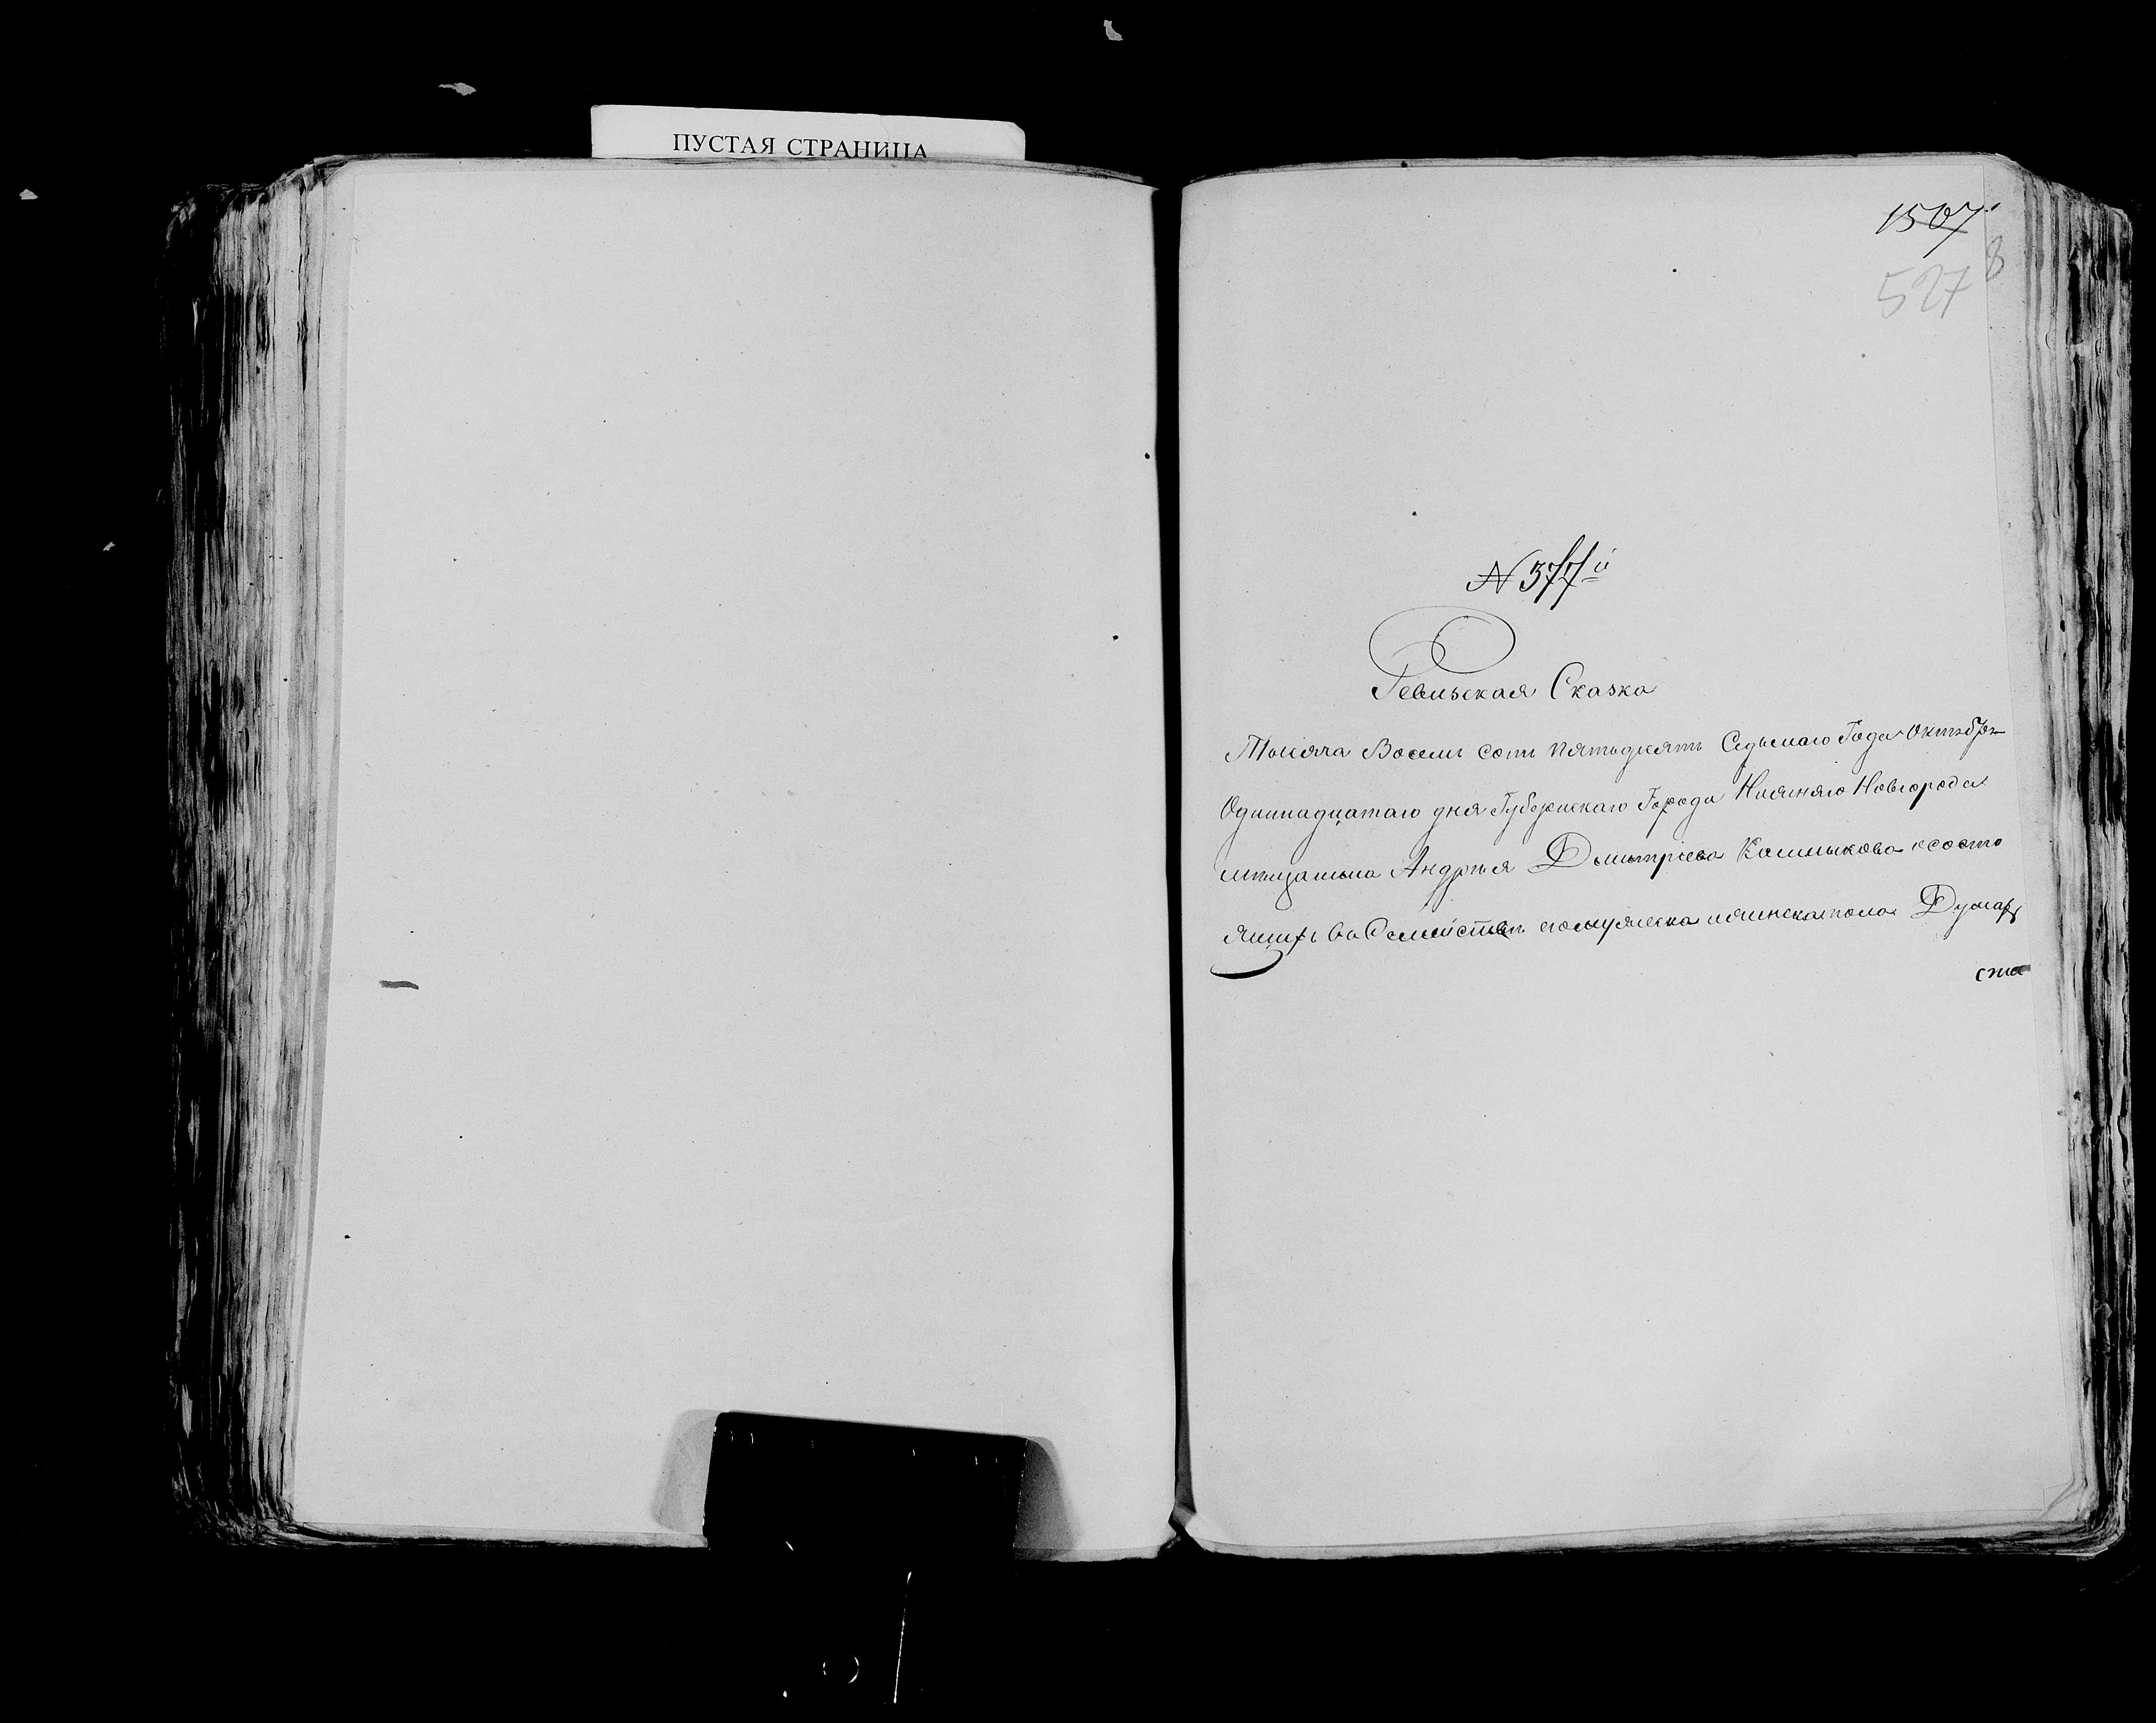 ПУСТАЯ СТРАНИЦА
1507.
527 8
№ 377й
Ревизская Сказка
Тысяча Восемь сотъ пятьдесятъ Седьмаго Года Октября
Одиннадцатаго дня Губернскаго Города Нижняго Новгорода
мѣщанина Андрея Дмитріева Калмыкова о состо
ящихъ въ Семействѣ его мужеска и женска пола Душахъ